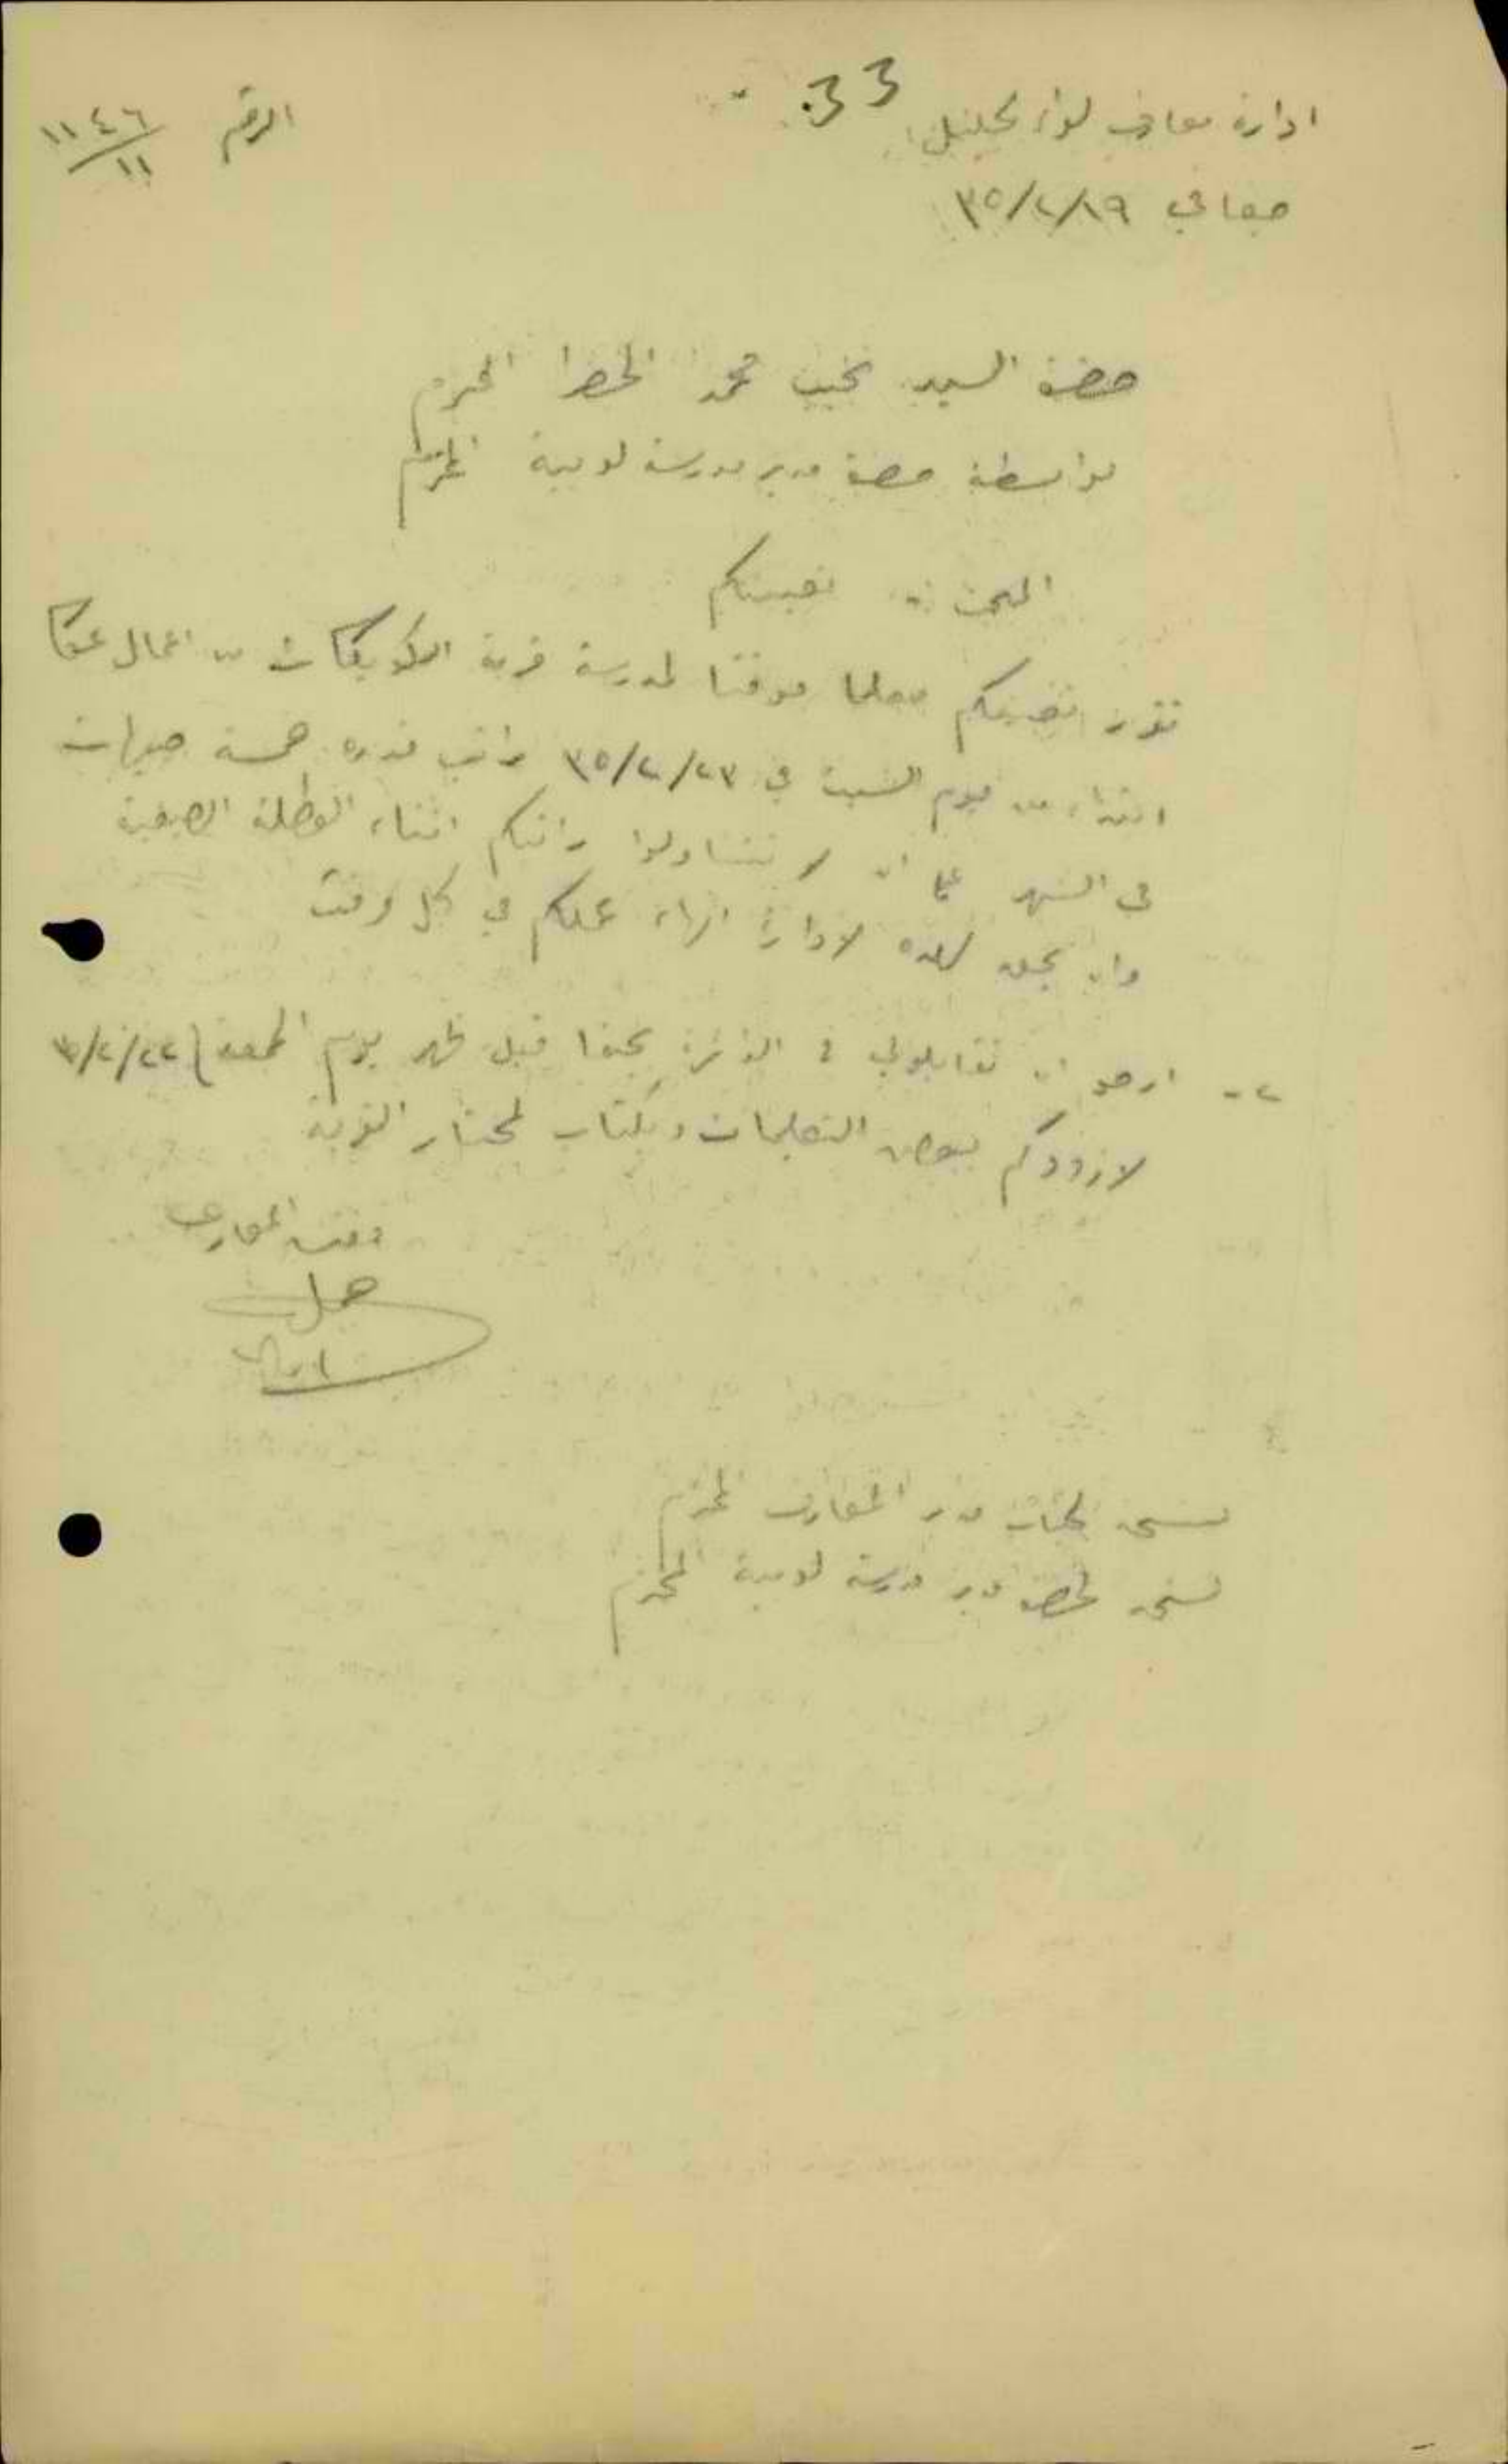 33
ادارة معارف لواء الجليل
الرقم ١١٤٦/١١
حيفا في ٣٥/٢/١٩
حضرة السيد نجيب محمد الخضرا المحترم
بواسطة حضرة مدير مدرسة لوبية المحترم
المبحث :- تعيينكم
تقرر تعيينكم معلما موقتا لمدرسة قرية الكويكات من اعمال عكا
ابتداء من يوم السبت في ٣٥/٢/٢٣ براتب قدره خمسة جنيهات
في الشهر على ان لا تتناولوا راتبكم اثناء العطلة الصيفية
وان يحق لهذه الادارة انهاء عملكم في كل وقت
٢- ارجو ان تقابلوني في الدائرة بحيفا قبل ظهر يوم الجمعة ٢/٢٢
لازودكم ببعض التعليمات وبكتاب لمختار القرية
مفتش المعارف
نسخة لجناب مدير المعارف المحترم
نسخة لحضرة مدير مدرسة لوبية المحترم